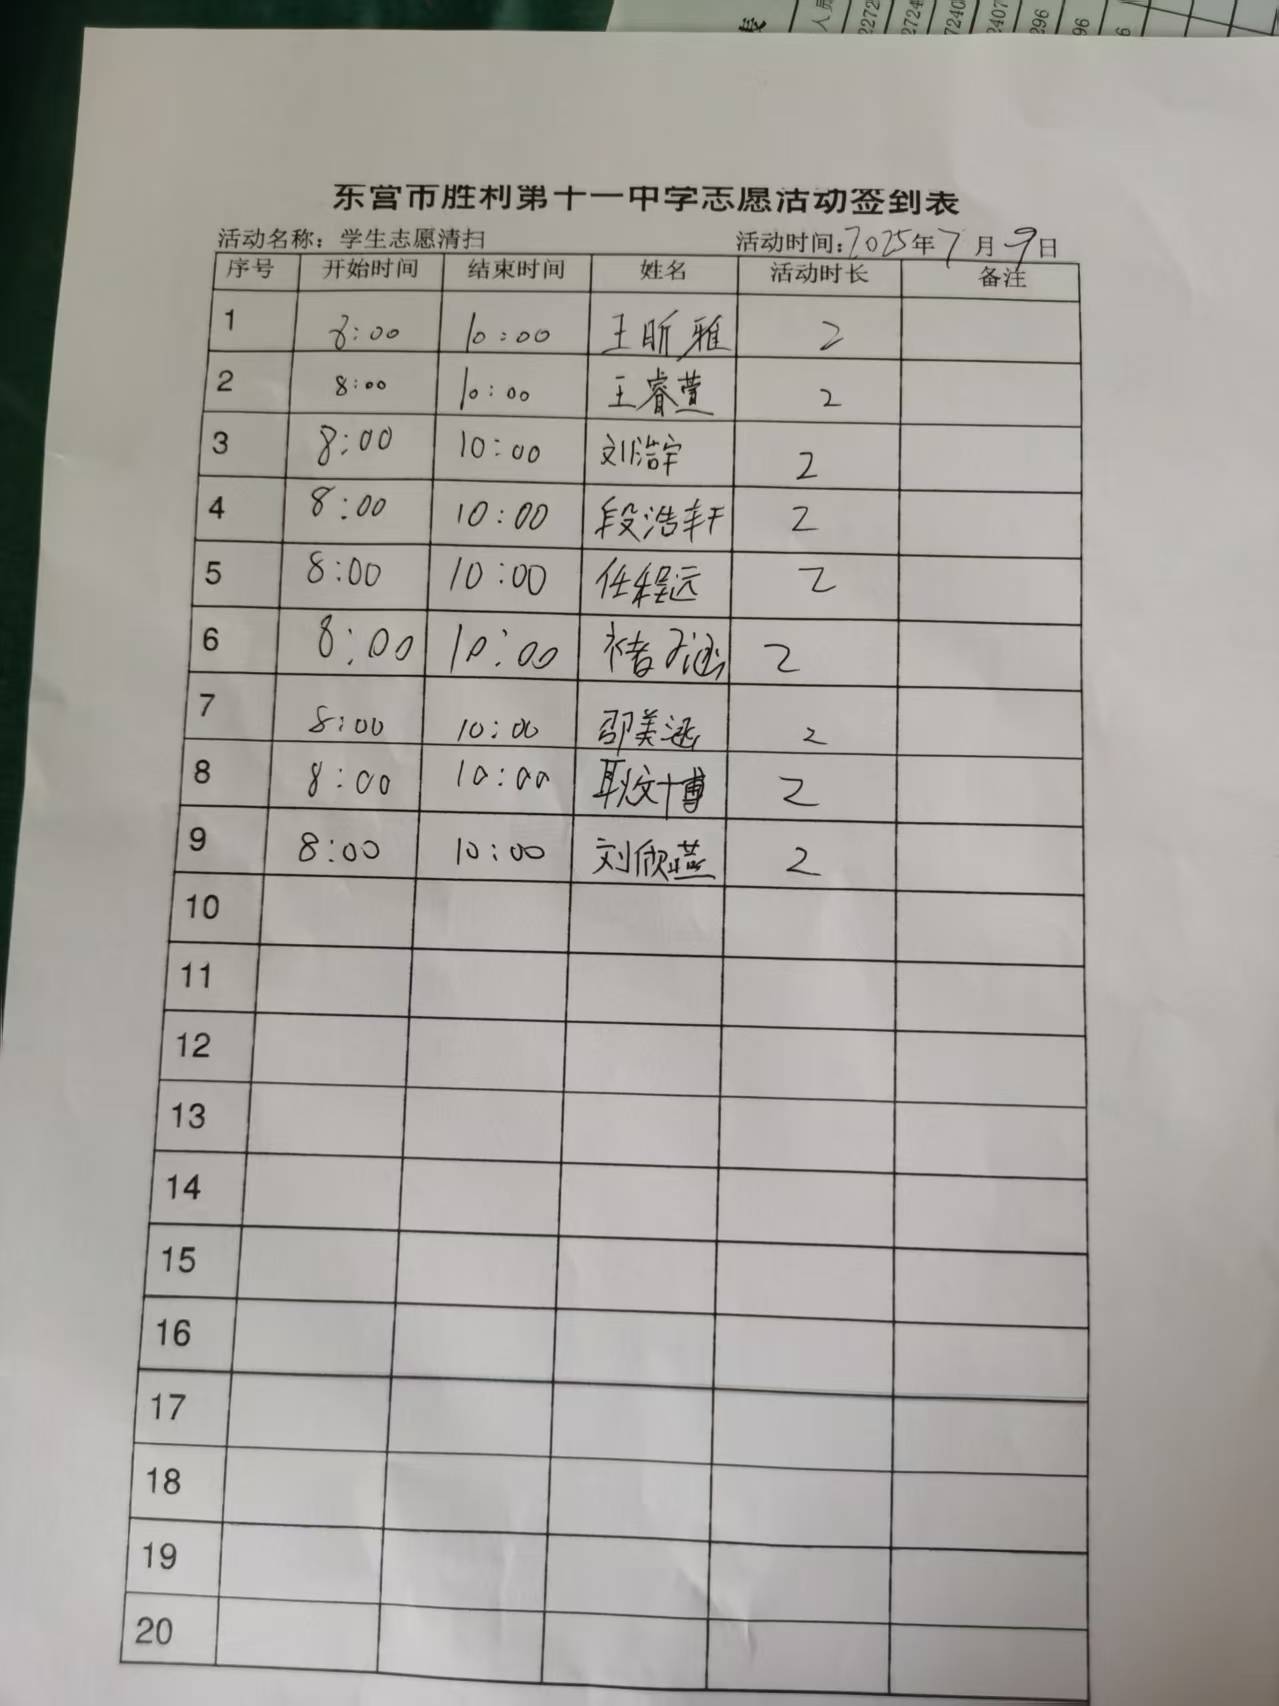 东营市胜利第十一中学志愿活动签到表
活动名称：学生志愿清扫 活动时间：2025年7月9日
序号 开始时间 结束时间 姓名 活动时长 备注
1 8:00 10:00 王昕雅 2
2 8:00 10:00 王睿萱 2
3 8:00 10:00 刘浩宇 2
4 8:00 10:00 段浩轩 2
5 8:00 10:00 任程远 2
6 8:00 10:00 褚子涵 2
7 8:00 10:00 邵美涵 2
8 8:00 10:00 耿文博 2
9 8:00 10:00 刘欣燕 2
10
11
12
13
14
15
16
17
18
19
20